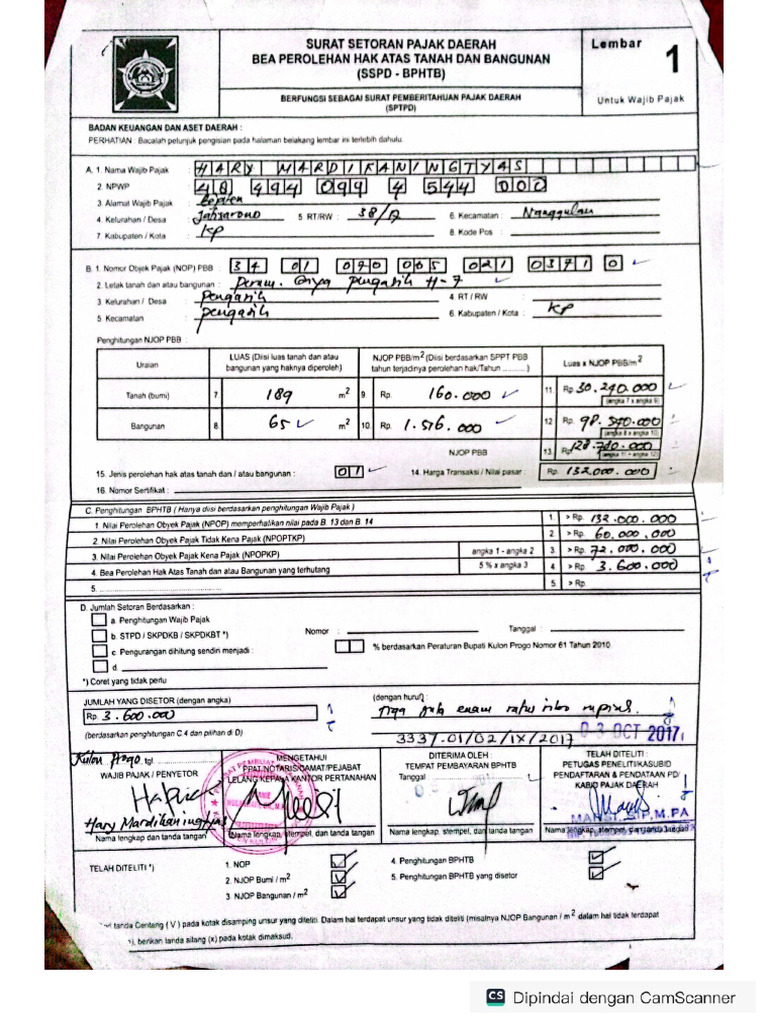 SURAT SETORAN PAJAK DAERAH
BEA PEROLEHAN HAK ATAS TANAH DAN BANGUNAN
(SSPD - BPHTB)
BERFUNGSI SEBAGAI SURAT PEMBERITAHUAN PAJAK DAERAH
(SPTPD)
Lembar 1
Untuk Wajib Pajak
BADAN KEUANGAN DAN ASET DAERAH :
PERHATIAN : Bacalah petunjuk pengisian pada halaman belakang lembar ini terlebih dahulu.
A. 1. Nama Wajib Pajak : HARY MARDIKANINGTYAS
2. NPWP : 48 494 099 4 544 000
3. Alamat Wajib Pajak :
4. Kelurahan / Desa : Jatisarono 5. RT/RW : 38/17 6. Kecamatan : Nanggulan
7. Kabupaten / Kota : KP 8. Kode Pos :
B. 1. Nomor Obyek Pajak (NOP) PBB : 34 01 070 005 021 0371 0
2. Letak tanah dan atau bangunan : Perum. Griya Pengasih H-7
3. Kelurahan / Desa : Pengasih 4. RT / RW :
5. Kecamatan : Pengasih 6. Kabupaten / Kota : KP
Penghitungan NJOP PBB :
Uraian LUAS (Diisi luas tanah dan atau bangunan yang haknya diperoleh) NJOP PBB/m2 (Diisi berdasarkan SPPT PBB tahun terjadinya perolehan hak/Tahun ..........) Luas x NJOP PBB/m2
Tanah (bumi) 7. 189 m2 9. Rp. 160.000 11. Rp 30.240.000
(angka 7 x angka 9)
Bangunan 8. 65 m2 10. Rp. 1.516.000 12. Rp. 98.540.000
(angka 8 x angka 10)
NJOP PBB 13. Rp 128.780.000
(angka 11 + angka 12)
15. Jenis perolehan hak atas tanah dan / atau bangunan : 01 14. Harga Transaksi / Nilai pasar : Rp. 132.000.000
16. Nomor Sertifikat :
C. Penghitungan BPHTB ( Hanya diisi berdasarkan penghitungan Wajib Pajak )
1. Nilai Perolehan Obyek Pajak (NPOP) memperhatikan nilai pada B. 13 dan B. 14 1. > Rp. 132.000.000
2. Nilai Perolehan Obyek Pajak Tidak Kena Pajak (NPOPTKP) 2. > Rp. 60.000.000
3. Nilai Perolehan Obyek Pajak Kena Pajak (NPOPKP) angka 1 - angka 2 3. > Rp. 72.000.000
4. Bea Perolehan Hak Atas Tanah dan atau Bangunan yang terhutang 5 % x angka 3 4 > Rp. 3.600.000
5. 5 > Rp.
D. Jumlah Setoran Berdasarkan :
a. Penghitungan Wajib Pajak
b. STPD / SKPDKB / SKPDKBT *) Nomor : Tanggal :
c. Pengurangan dihitung sendiri menjadi : % berdasarkan Peraturan Bupati Kulon Progo Nomor 61 Tahun 2010
d.
*) Coret yang tidak perlu
JUMLAH YANG DISETOR (dengan angka) (dengan huruf) :
Rp. 3.600.000 Tiga juta enam ratus ribu rupiah.
(berdasarkan penghitungan C.4 dan pilihan di D) 3337/01/02/IX/2017
03 OCT 2017
Kulon Progo, tgl.
WAJIB PAJAK / PENYETOR
Hary Mardikaningtyas
Nama lengkap dan tanda tangan
MENGETAHUI
PPAT NOTARIS/CAMAT/PEJABAT
LELANG KEPALA KANTOR PERTANAHAN
Nama lengkap, stempel, dan tanda tangan
DITERIMA OLEH :
TEMPAT PEMBAYARAN BPHTB
Tanggal
Nama lengkap, stempel, dan tanda tangan
TELAH DITELITI :
PETUGAS PENELITI/KASUBID
PENDAFTARAN & PENDATAAN PD/
KABID PAJAK DAERAH
Nama lengkap, stempel, dan tanda tangan
TELAH DITELITI *)
1. NOP
2. NJOP Bumi / m2
3. NJOP Bangunan / m2
4. Penghitungan BPHTB
5. Penghitungan BPHTB yang disetor
tanda Centang ( V ) pada kotak disamping unsur yang diteliti. Dalam hal terdapat unsur yang tidak diteliti (misalnya NJOP Bangunan / m2 dalam hal tidak terdapat
), berikan tanda silang (x) pada kotak dimaksud.
CS Dipindai dengan CamScanner